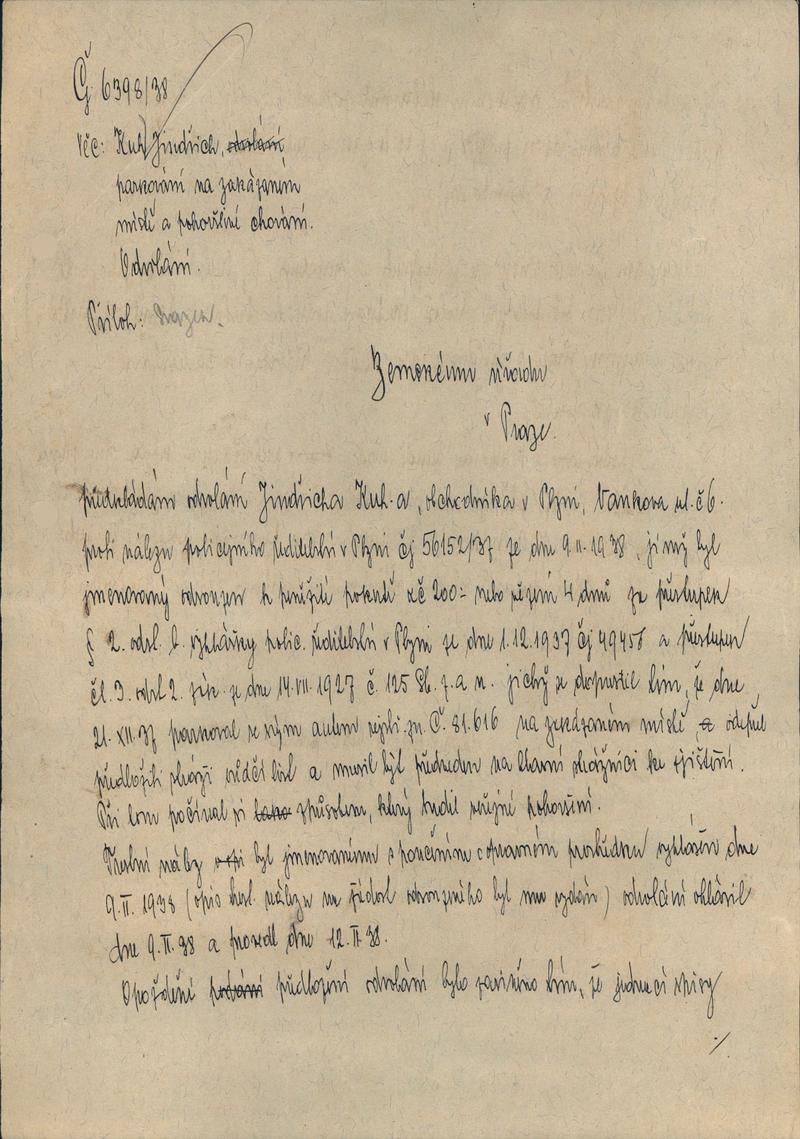 Čj 6398/38
Věc: Kuh Jindřich, odvolání
parkování na zakázaném
místě a pohoršlivé chování.
Odvolání.
Příloh: svazek.
Zemskému úřadu
v Praze.
předkládám odvolání Jindřicha Kuh-a, obchodníka v Plzni, Vankova ul. č 6.
proti nálezu policejního ředitelství v Plzni čj 56152/37 ze dne 9.II.1938, jímž byl
jmenovaný odsouzen k peněžité pokutě Kč 200.- nebo vězení 4 dnů za přestupek
§ 2. odst. b. vyhlášky polic. ředitelství v Plzni ze dne 1.12.1937 čj 49458 a přestupek
čl. 3. odst 2. zák. ze dne 14.VII.1927 č. 125 Sb. z. a n. jichž se dopustil tím, že dne
21.XII.37 parkoval se svým autem rejstř. zn. Č. 81.616 na zakázaném místě, a odepřel
předložiti stráži vůdčí list a musil býti předveden na hlavní strážnici ke zjištění.
Při tom počínal si tako způsobem, který budil veřejné pohoršení.
Trestní nález byl jmenovanému s poučením o opravném prostředku vyhlášen dne
9.II.1938 (opis trest. nálezu na žádost odsouzeného byl mu vydán) odvolání ohlásil
dne 9.II.38 a provedl dne 12.II.38.
Opoždění podání předložení odvolání bylo zaviněno tím, že jednací spisy
./